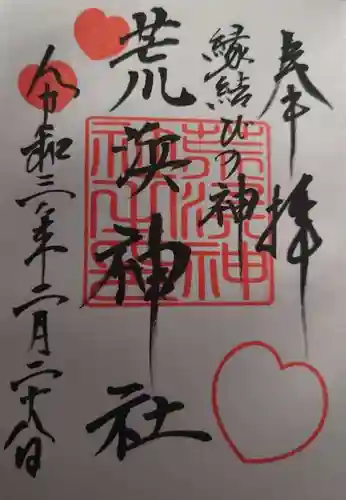 奉拝
縁結びの神
荒浜神社
令和三年二月二十八日